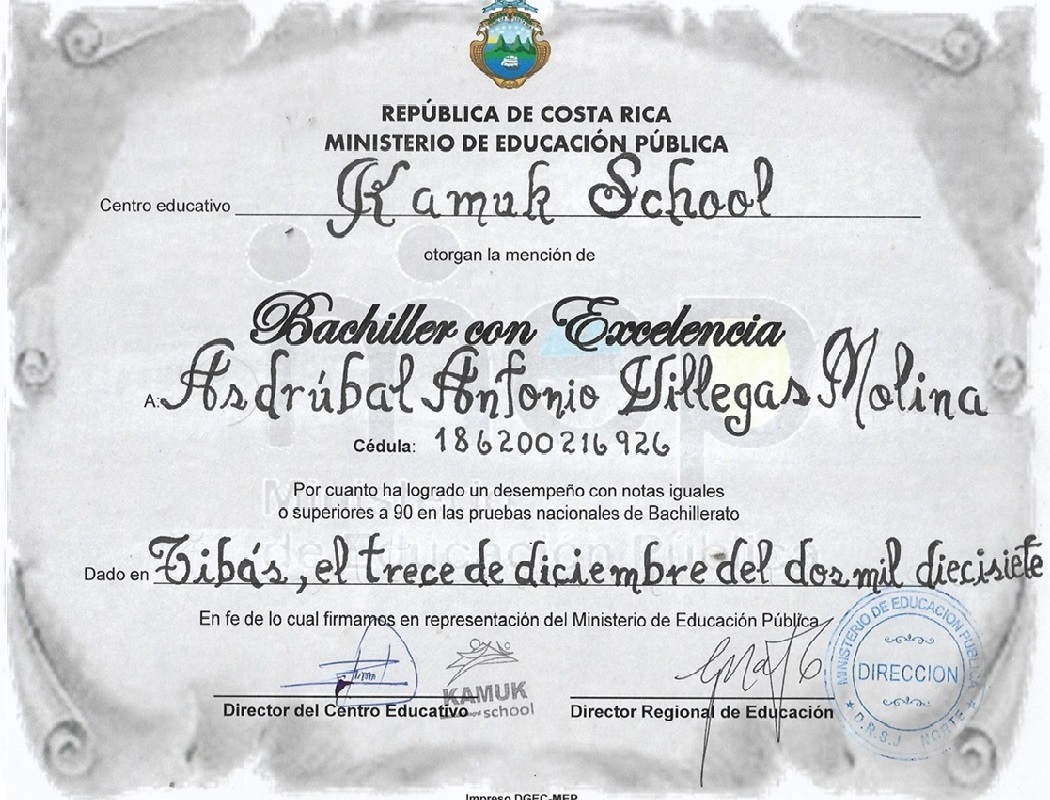 REPÚBLICA DE COSTA RICA
MINISTERIO DE EDUCACIÓN PÚBLICA
Centro educativo Kamuk School
otorgan la mención de
Bachiller con Excelencia
A: Asdrúbal Antonio Villegas Molina
Cédula: 186200216926
Por cuanto ha logrado un desempeño con notas iguales
o superiores a 90 en las pruebas nacionales de Bachillerato
Dado en Tibás, el trece de diciembre del dos mil diecisiete
En fe de lo cual firmamos en representación del Ministerio de Educación Pública
KAMUK
school
Director del Centro Educativo
Director Regional de Educación
MINISTERIO DE EDUCACION PUBLICA
DIRECCION
D.R.S.J. NORTE
mep
Ministerio
de Educación Pública
Impreso DGEC-MEP